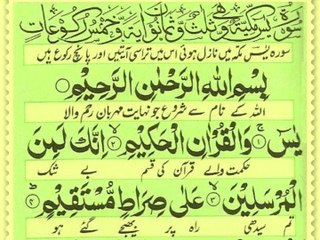 سورۃ یٰس مکیۃ وھی ثلث و ثمانون اٰیۃ و خمس رکوعات
سورہ یٰس مکہ میں نازل ہوئی اس میں تراسی آیتیں اور پانچ رکوع ہیں
بِسْمِ اللّٰهِ الرَّحْمٰنِ الرَّحِيْمِ
اللہ کے نام سے شروع جو نہایت مہربان رحم والا
يٰسٓ ۚ﴿۱﴾ وَالْقُرْاٰنِ الْحَكِيْمِ ۙ﴿۲﴾ اِنَّكَ لَمِنَ
حکمت والے قرآن کی قسم بے شک
الْمُرْسَلِيْنَ ۙ﴿۳﴾ عَلٰى صِرَاطٍ مُّسْتَقِيْمٍ ؕ﴿۴﴾
تم سیدھی راہ پر بھیجے گئے ہو